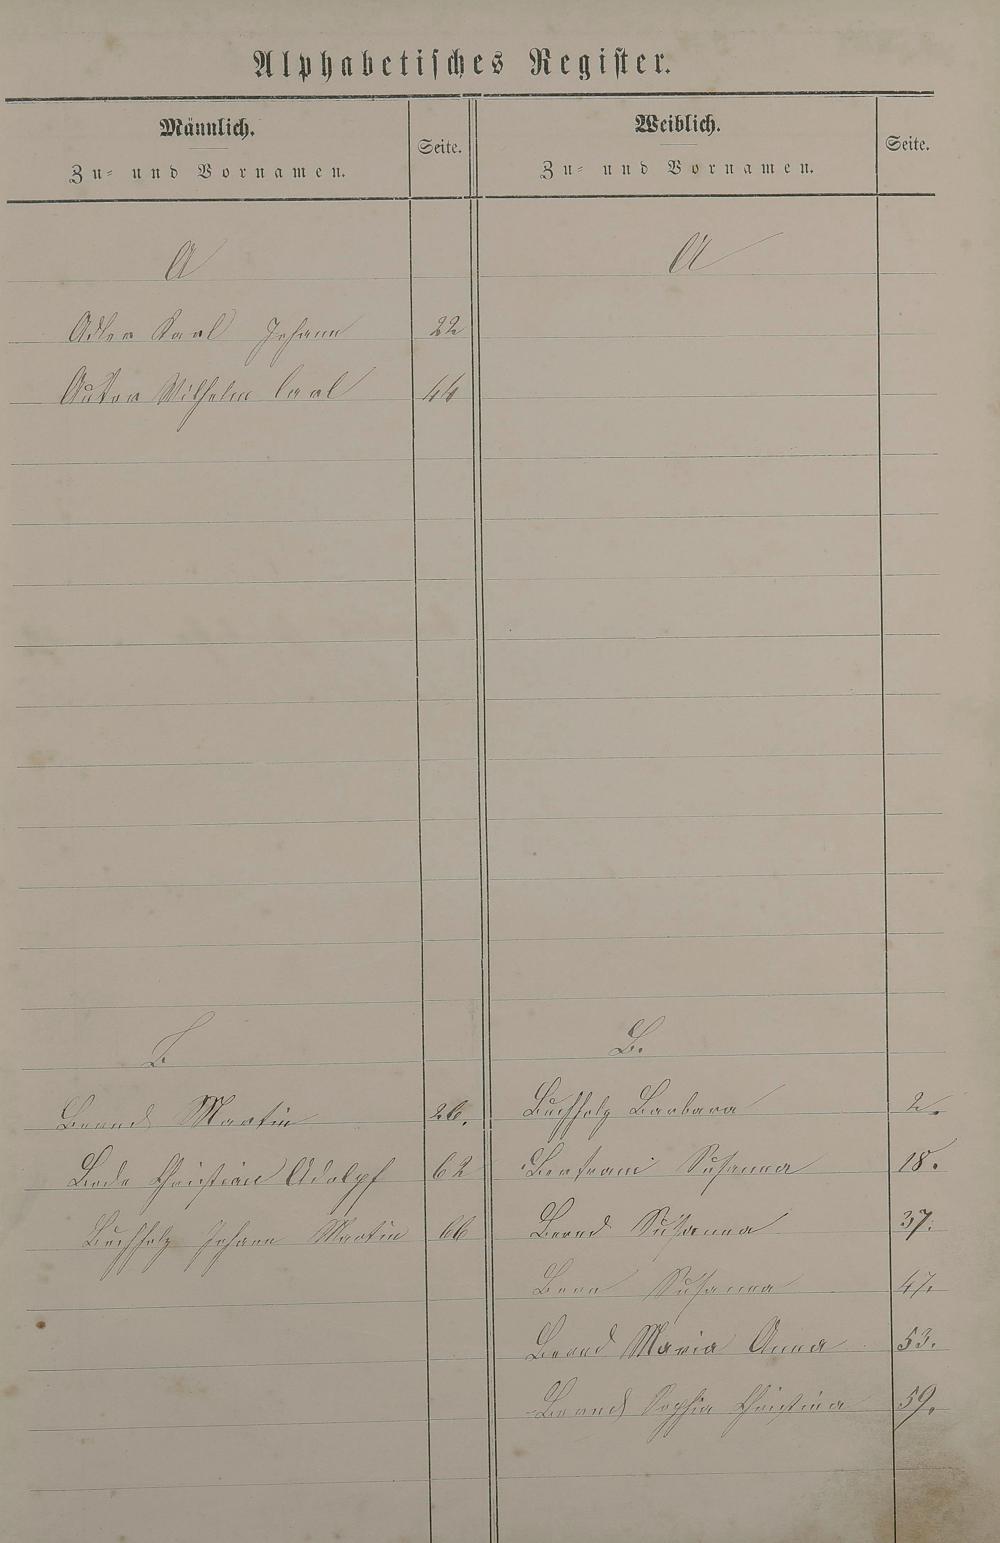 Alphabetisches Register.
Männlich.
Zu- und Vornamen.
Seite.
Weiblich.
Zu- und Vornamen.
Seite.
A
A
Adler Karl Johann 22
Autor Wilhelm Carl 44
B.
B.
Berend Martin 26.
Buchholz Barbara 2.
Bode Christian Adolph 62
Bertram Susanna 18.
Buchholz Johann Martin 66
Berend Susanna 37.
Susanna 47.
Berend Maria Anna 53.
Berend Sophia Christina 59.